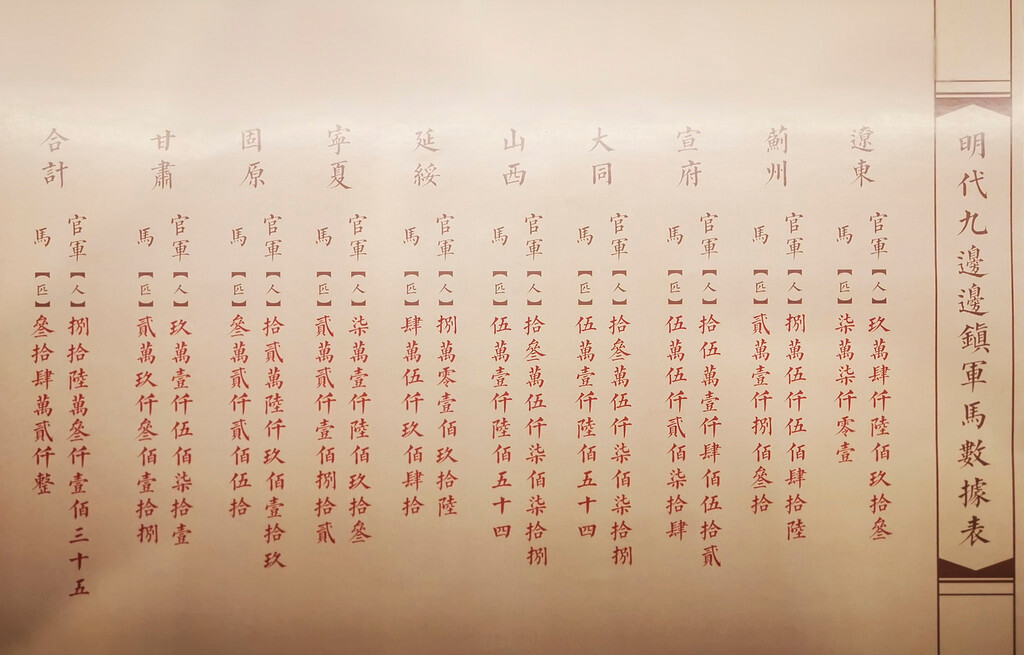 明代九邊邊鎮軍馬數據表
遼東
官軍【人】玖萬肆仟陸佰玖拾叄
馬【匹】柒萬柒仟零壹
薊州
官軍【人】捌萬伍仟伍佰肆拾陸
馬【匹】貳萬壹仟捌佰叄拾
宣府
官軍【人】拾伍萬壹仟肆佰伍拾貳
馬【匹】伍萬伍仟貳佰柒拾肆
大同
官軍【人】拾叄萬伍仟柒佰柒拾捌
馬【匹】伍萬壹仟陸佰五十四
山西
官軍【人】拾叄萬伍仟柒佰柒拾捌
馬【匹】伍萬壹仟陸佰五十四
延綏
官軍【人】捌萬零壹佰玖拾陸
馬【匹】肆萬伍仟玖佰肆拾
寧夏
官軍【人】柒萬壹仟陸佰玖拾叄
馬【匹】貳萬貳仟壹佰捌拾貳
固原
官軍【人】拾貳萬陸仟玖佰壹拾玖
馬【匹】叄萬貳仟貳佰伍拾
甘肅
官軍【人】玖萬壹仟伍佰柒拾壹
馬【匹】貳萬玖仟叄佰壹拾捌
合計
官軍【人】捌拾陸萬叄仟壹佰三十五
馬【匹】叄拾肆萬貳仟整